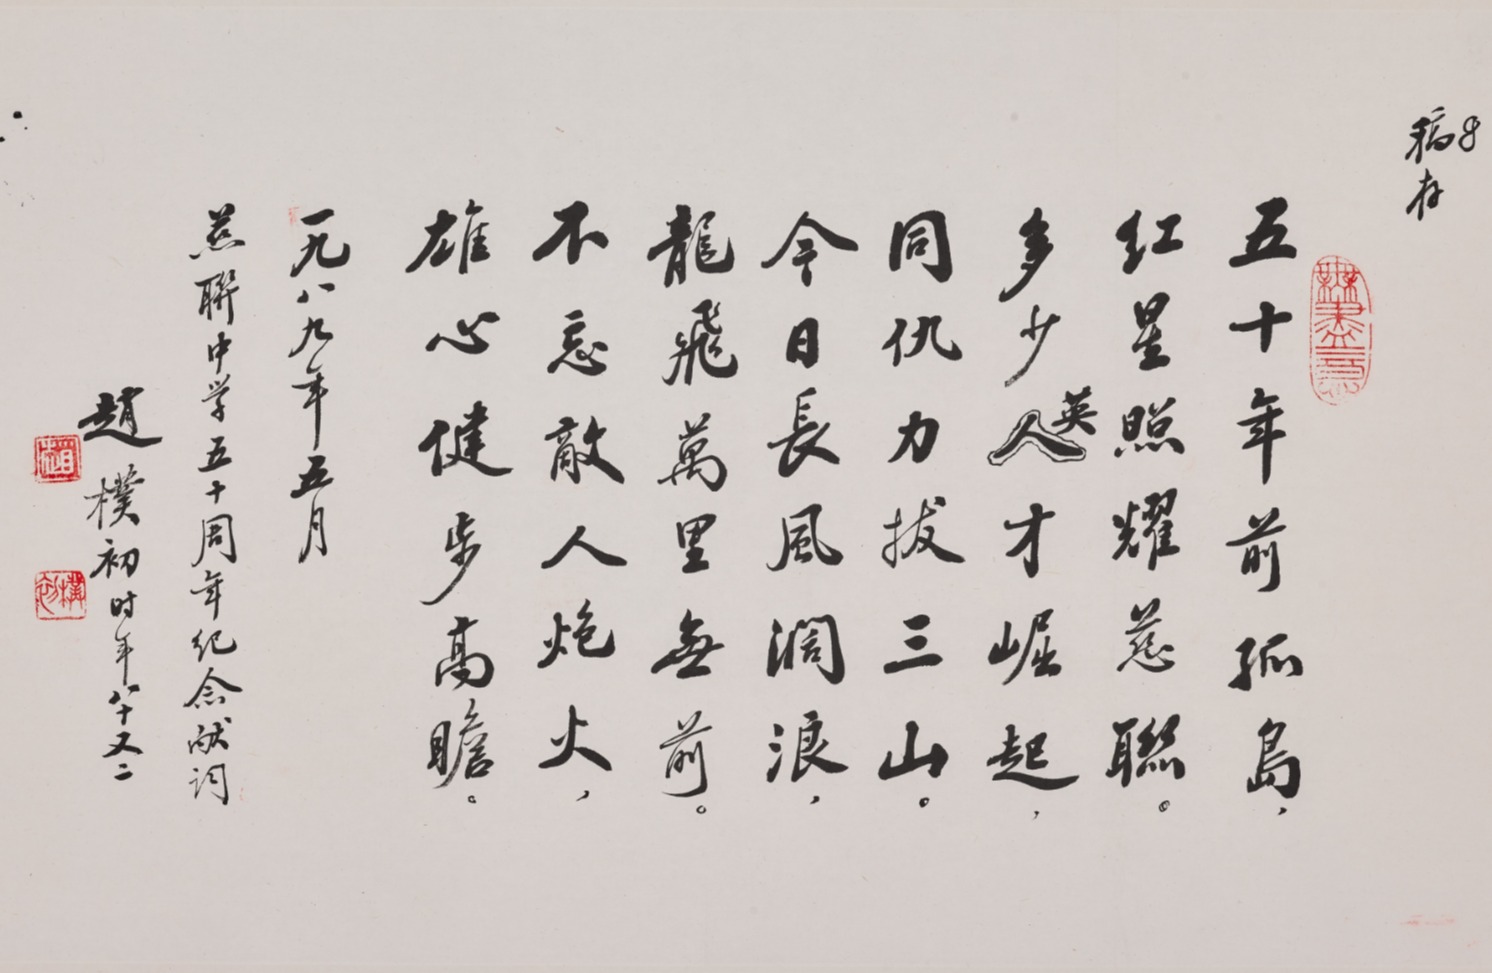 稿存
無盡意
五十年前孤島，
红星照耀慈聯。
多少人英才崛起，
同仇力拔三山。
今日長風濶浪，
龍飛萬里無前。
不忘敵人炮火，
雄心健步高瞻。
一九八九年五月
慈聯中学五十周年纪念献词
趙樸初时年八十又二
趙
樸初